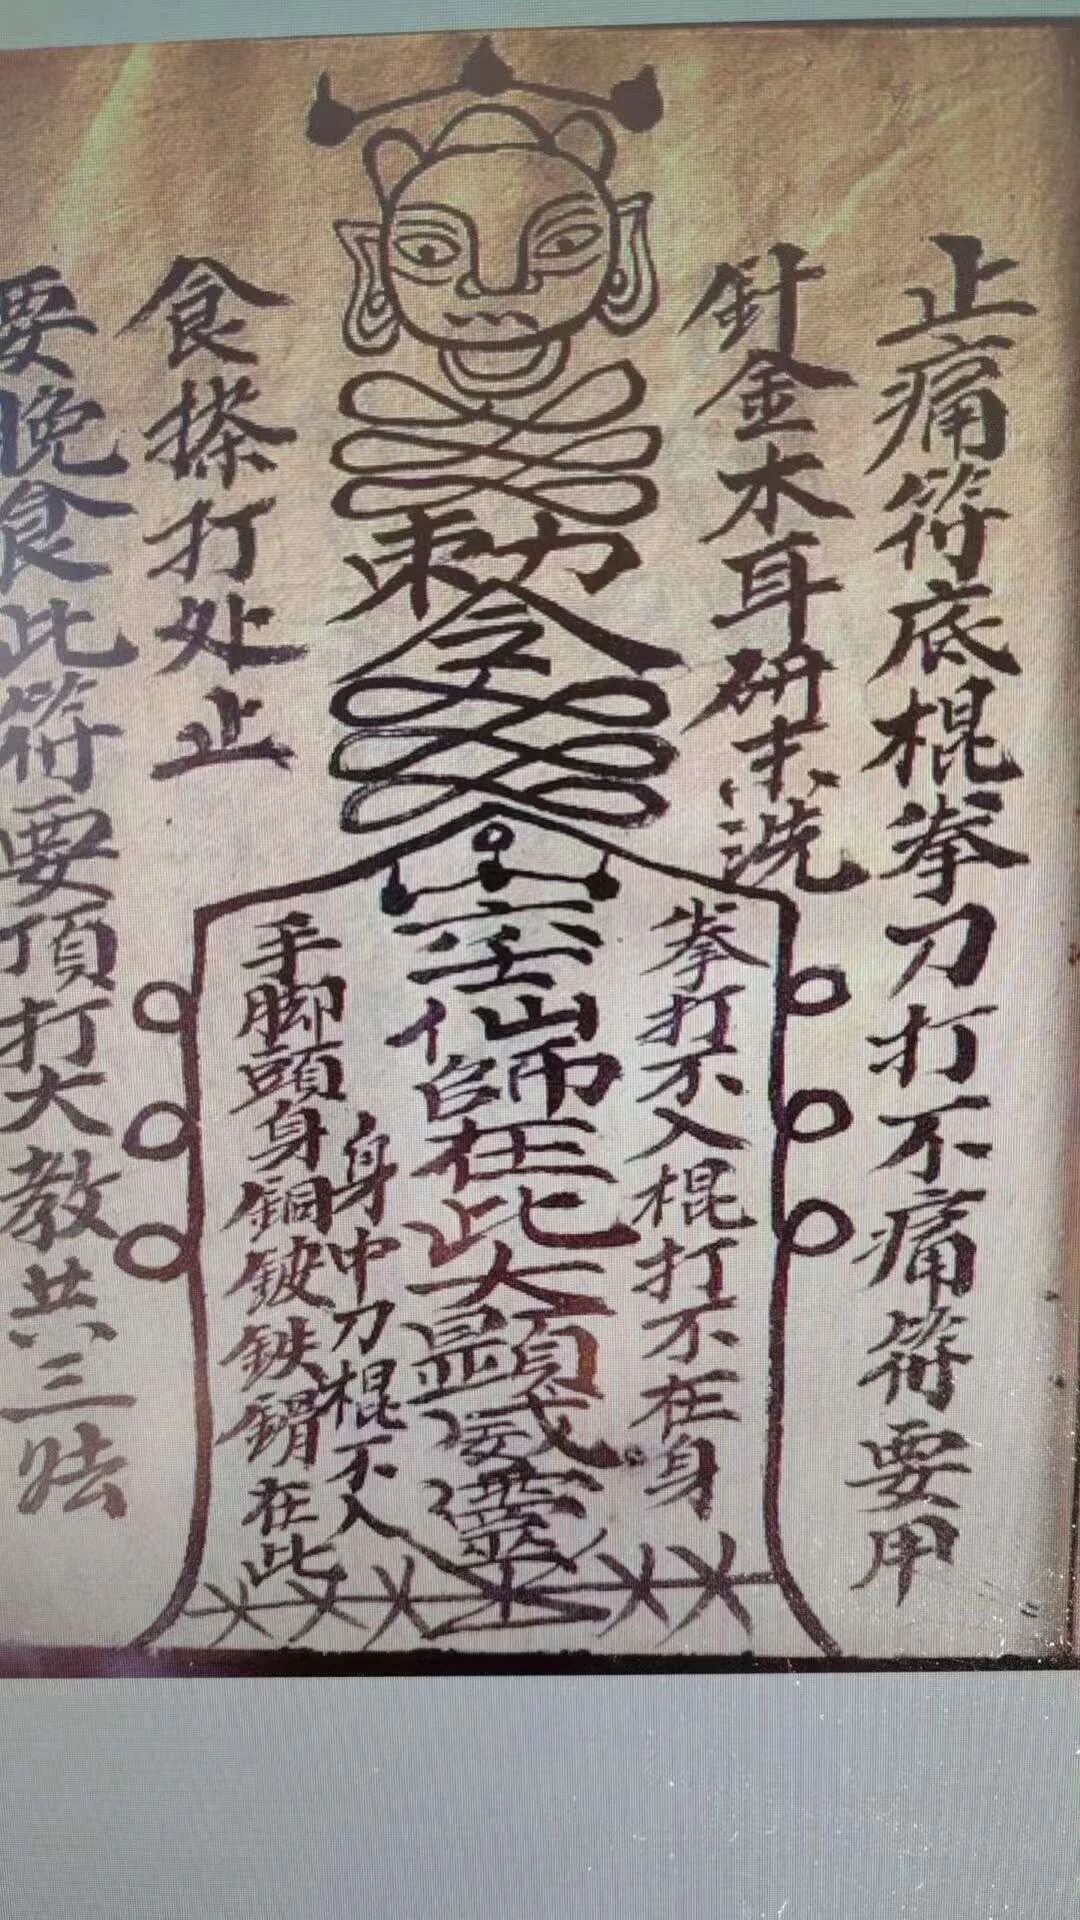 止痛符底棍拳刀打不痛符要用
針金木耳研末洗
勅令
拳打不入棍打不在身
仙師在此大顯威靈
身中刀棍不入
手脚頭身銅鈹鉄鎖在此
食搽打处止
要晚食此符要頂打大教共三法